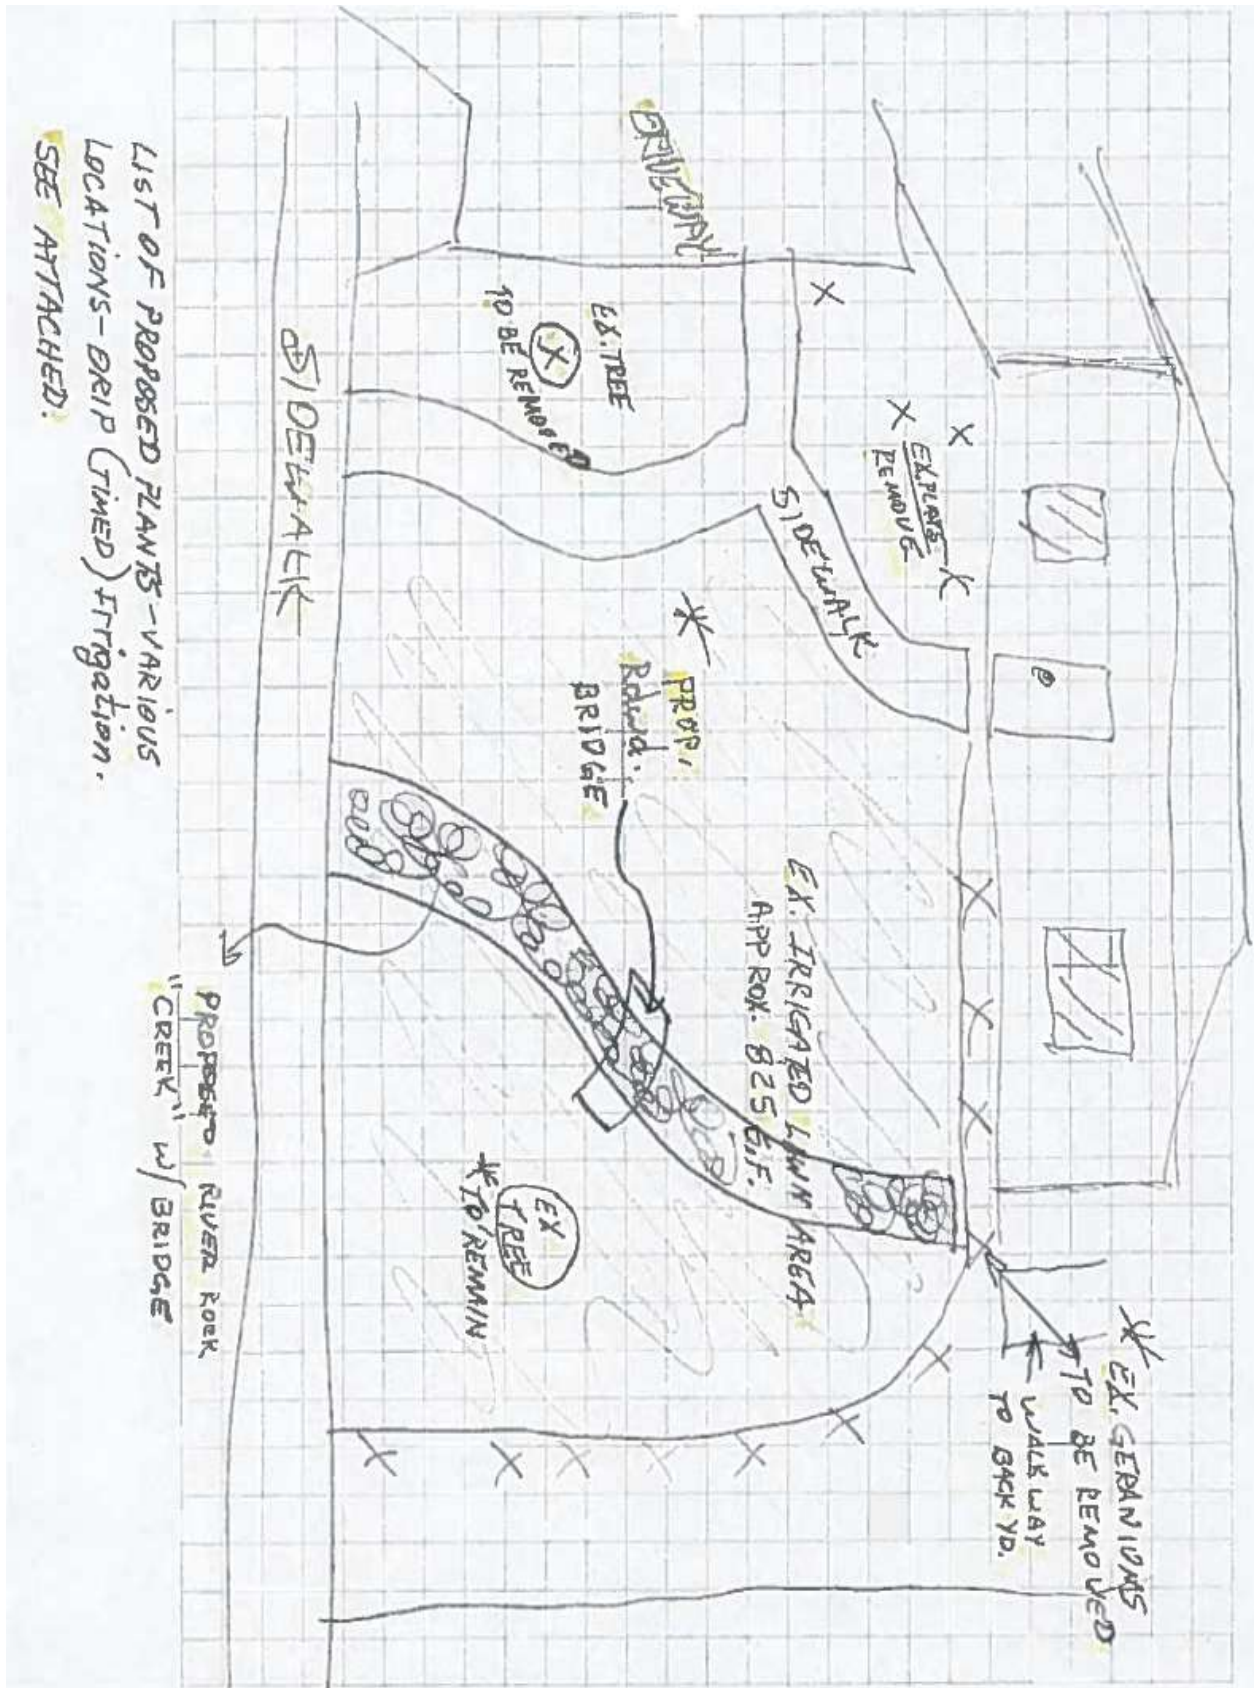 * EX. GERANIUMS
TO BE REMOVED
WALKWAY
TO BACK YD.
DRIVEWAY
EX. TREE
X
TO BE REMOVED
EX. PLANTS
REMOVE
SIDEWALK
* PROP.
BRIDGE
EX. IRRIGATED LAWN AREA
APPROX. 825 S.F.
EX
TREE
* TO REMAIN
SIDEWALK
PROPOSED RIVER ROCK
"CREEK" W/ BRIDGE
LIST OF PROPOSED PLANTS - VARIOUS
LOCATIONS - DRIP (TIMED) Irrigation.
SEE ATTACHED.